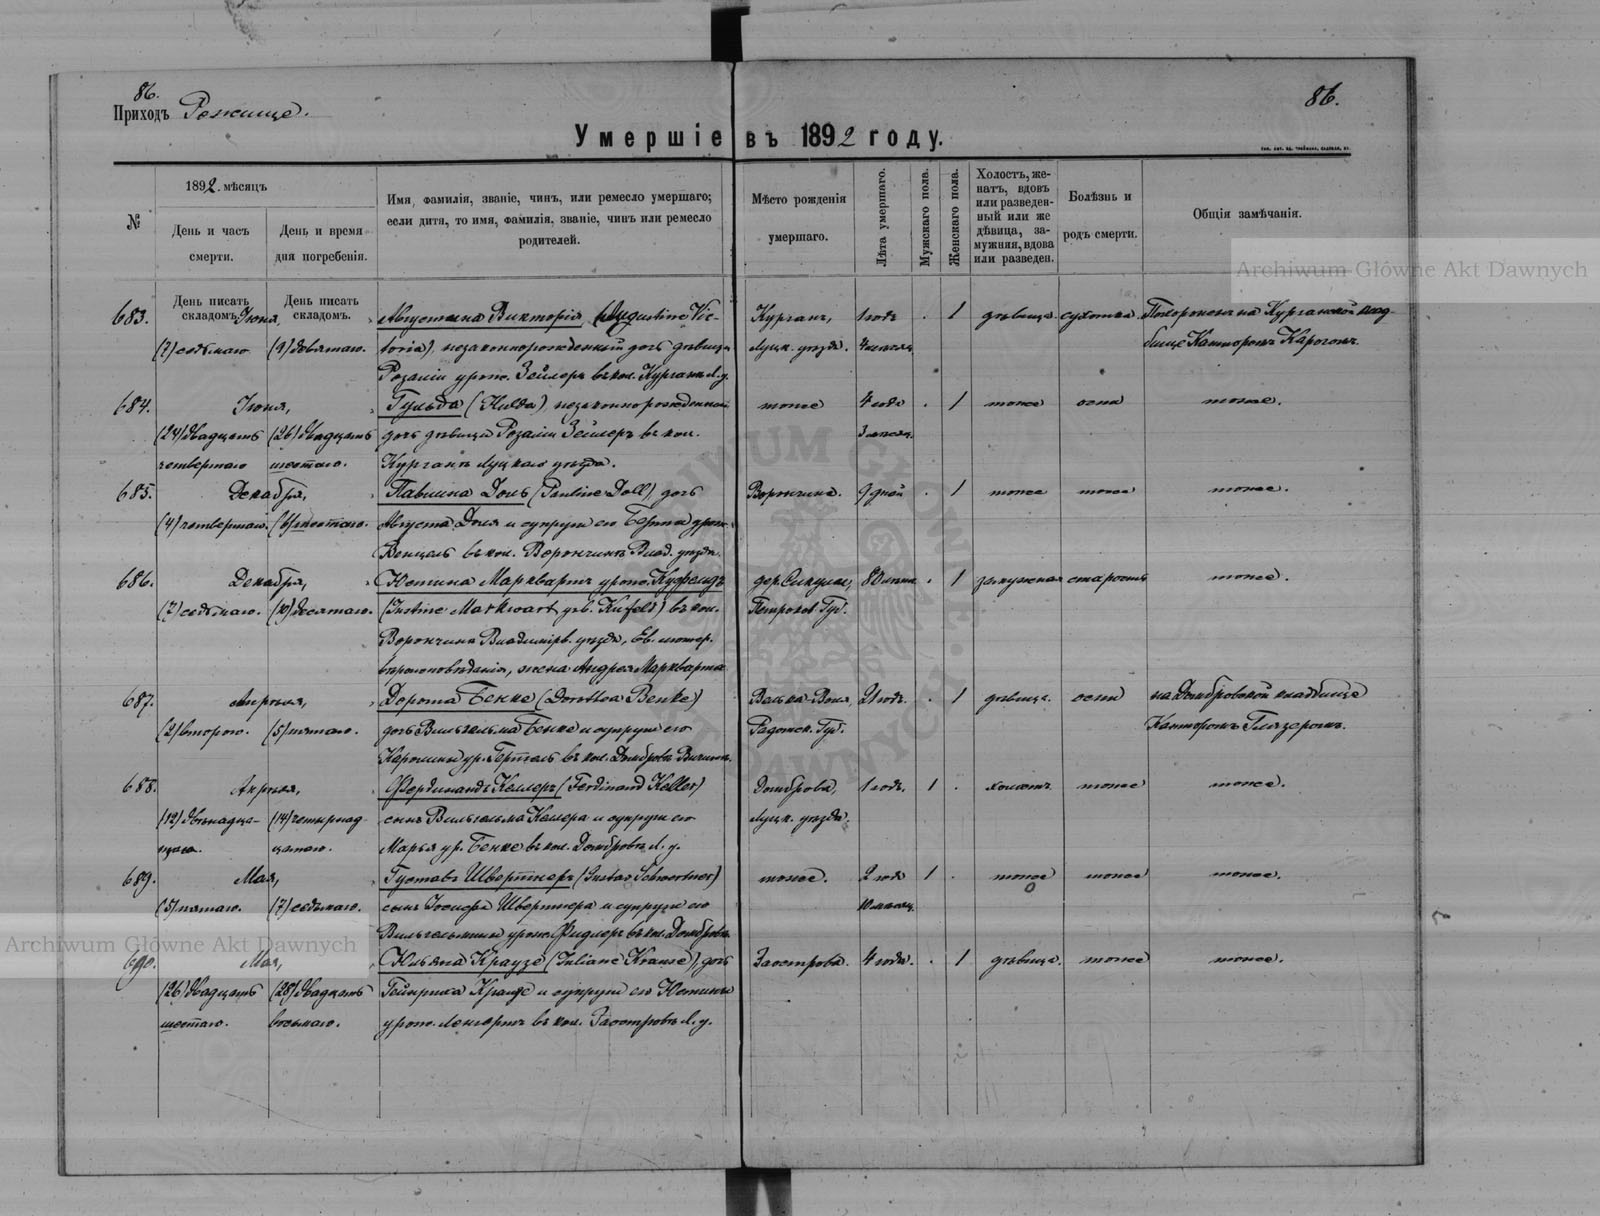 86.
86.
Приходъ Рожище.
Умершіе въ 1892 году.
№
1892 мѣсяцъ
День и часъ смерти.
День и время дня погребенія.
Имя, фамилія, званіе, чинъ, или ремесло умершаго;
если дитя, то имя, фамилія, званіе, чинъ или ремесло
родителей.
Мѣсто рожденія
умершаго.
Лѣта умершаго.
Мужскаго пола.
Женскаго пола.
Холостъ, же-
натъ, вдовъ
или разведен-
ный или же
дѣвица, за-
мужняя, вдова
или разведен.
Болѣзнь и
родъ смерти.
Общія замѣчанія.
Archiwum Główne Akt Dawnych
День писать складомъ.
День писать складомъ.
683. Іюня, Августина Викторія (Augustine Vic- Курганъ, 1 годъ . 1 дѣвица сухотка Похоронена на Курганской клад-
(7) седьмаго (9) девятаго. toria), незаконнорожденный дочь дѣвицы Луцк. уѣзда. 4 мѣсяц. бище Канторомъ
Розаліи урож. Зейлеръ въ кол. Курганъ Л. у.
684. Іюня, Гульда (Hulda) незаконнорожденная тоже 4 года . 1 тоже оспа тоже.
(24) двадцать (26) двадцать дочь дѣвицы Розаліи Зейлеръ въ кол. 3 мѣсяц.
четвертаго шестаго. Курганъ Луцкаго уѣзда.
685. Декабря, Павлина Доль (Pauline Doll), дочь Ворончинъ. 9 дней . 1 тоже тоже тоже.
(4) четвертаго. (6) шестаго. Августа Доля и супруги его Берта урож.
Венцель въ кол. Ворончинъ Влад. уѣзда.
686. Декабря, Юстина Марквартъ урож. Куфельдъ дер. 80 лѣтъ . 1 замужняя старость тоже.
(7) седьмаго. (10) десятаго. (Justine Markwart geb. Kufeld) въ кол. Петроков. Губ.
Ворончинъ Владимірв. уѣзда, Ев. лютер.
вѣроисповѣданія, жена Андрея Маркварта
687. Апрѣля, Дорота Бенке (Dorothea Benke) Волька-Воля, 21 годъ. . 1 дѣвица. оспа на Домбровской кладбище
(2) второго. (5) пятаго. дочь Вильгельма Бенке и супруги его Радомск. Губ. Канторомъ Глязеромъ.
Каролины ур. Гертель въ кол. Домброва
688. Апрѣля, Фердинандъ Келлеръ (Ferdinand Keller) Домброва, 1 годъ. 1 . холостъ тоже тоже.
(12) двѣнадца- (14) четырнад- сынъ Вильгельма Келлера и супруги его Луцк. уѣзда.
таго. цатаго. Марья ур. Бенке въ кол. Домбровъ Л. у.
689. Мая, Густавъ Швертнеръ (Gustav Schwertner) тоже. 2 года 1 . тоже тоже тоже.
(5) пятаго. (7) седьмаго. сынъ Іосифа Швертнера и супруги его 10 мѣсяц.
Вильгельмины урож. Фидлеръ въ кол. Домбровъ.
Archiwum Główne Akt Dawnych
690. Мая, Юліяна Краузе (Juliane Krause), дочь Заострова. 4 года. . 1 дѣвица. тоже тоже.
(26) двадцать (28) двадцать Гейнриха Краузе и супруги его Юстины
шестаго. восьмаго. урож. Ленгертъ въ кол. Заостровъ Л. у.